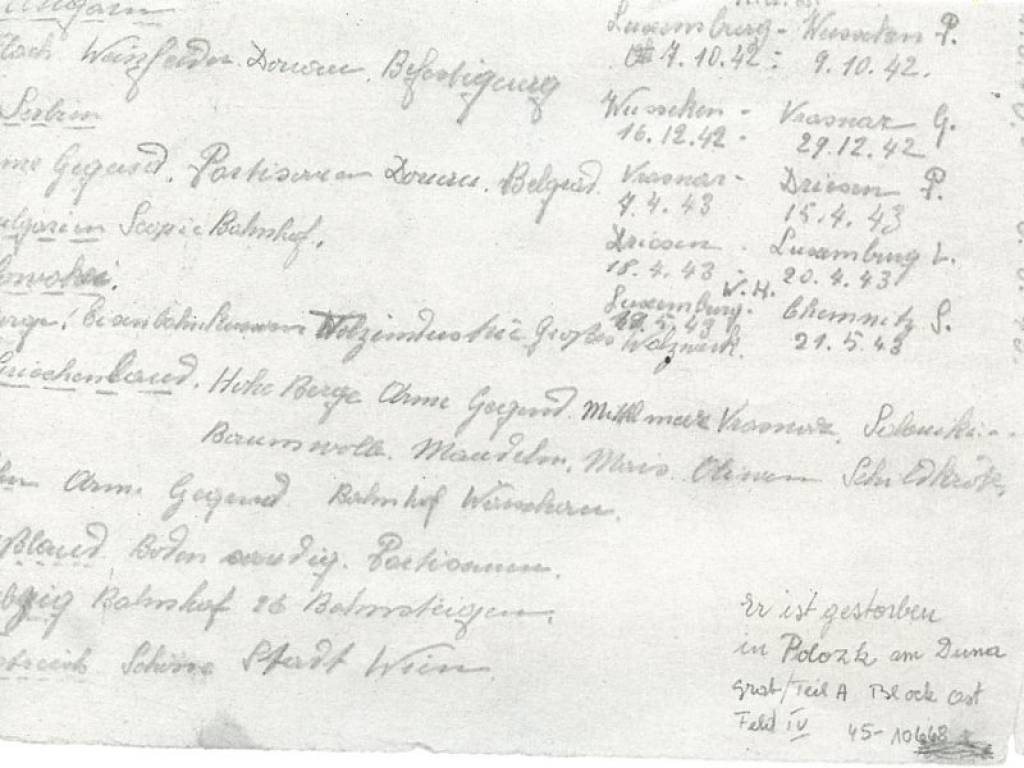 Ungarn
Weinfelder. Donau. Befestigung
Serbien
Gegend. Partisanen Donau. Belgrad.
Bulgarien Scopie Bahnhof.
Slowakei.
Berge! Eisenbahn Holzindustrie Großes Walzwerk.
Griechenland. Hohe Berge Arme Gegend. Mittelmeer Vrasnar. Saloniki -
Baumwolle. Mandeln. Mais. Oliven Schildkröte,
Arme Gegend Bahnhof Warschau.
Rußland. Boden sandig. Partisanen.
Leipzig Bahnhof 26 Bahnsteigen.
Schöne Stadt Wien
Luxemburg - Wusseken P.
7.10.42 - 9.10.42.
Wusseken - Vrasnar G.
16.12.42 - 29.12.42
Vrasnar - Driesen P.
7.4.43 15.4.43
Driesen - Luxemburg L.
18.4.43 - 20.4.43
W.H.
Luxemburg. Chemnitz S.
19.5.43 21.5.43
Er ist gestorben
in Polozk am Duna
Grab/Teil A Block Ost
Feld IV 45-10668